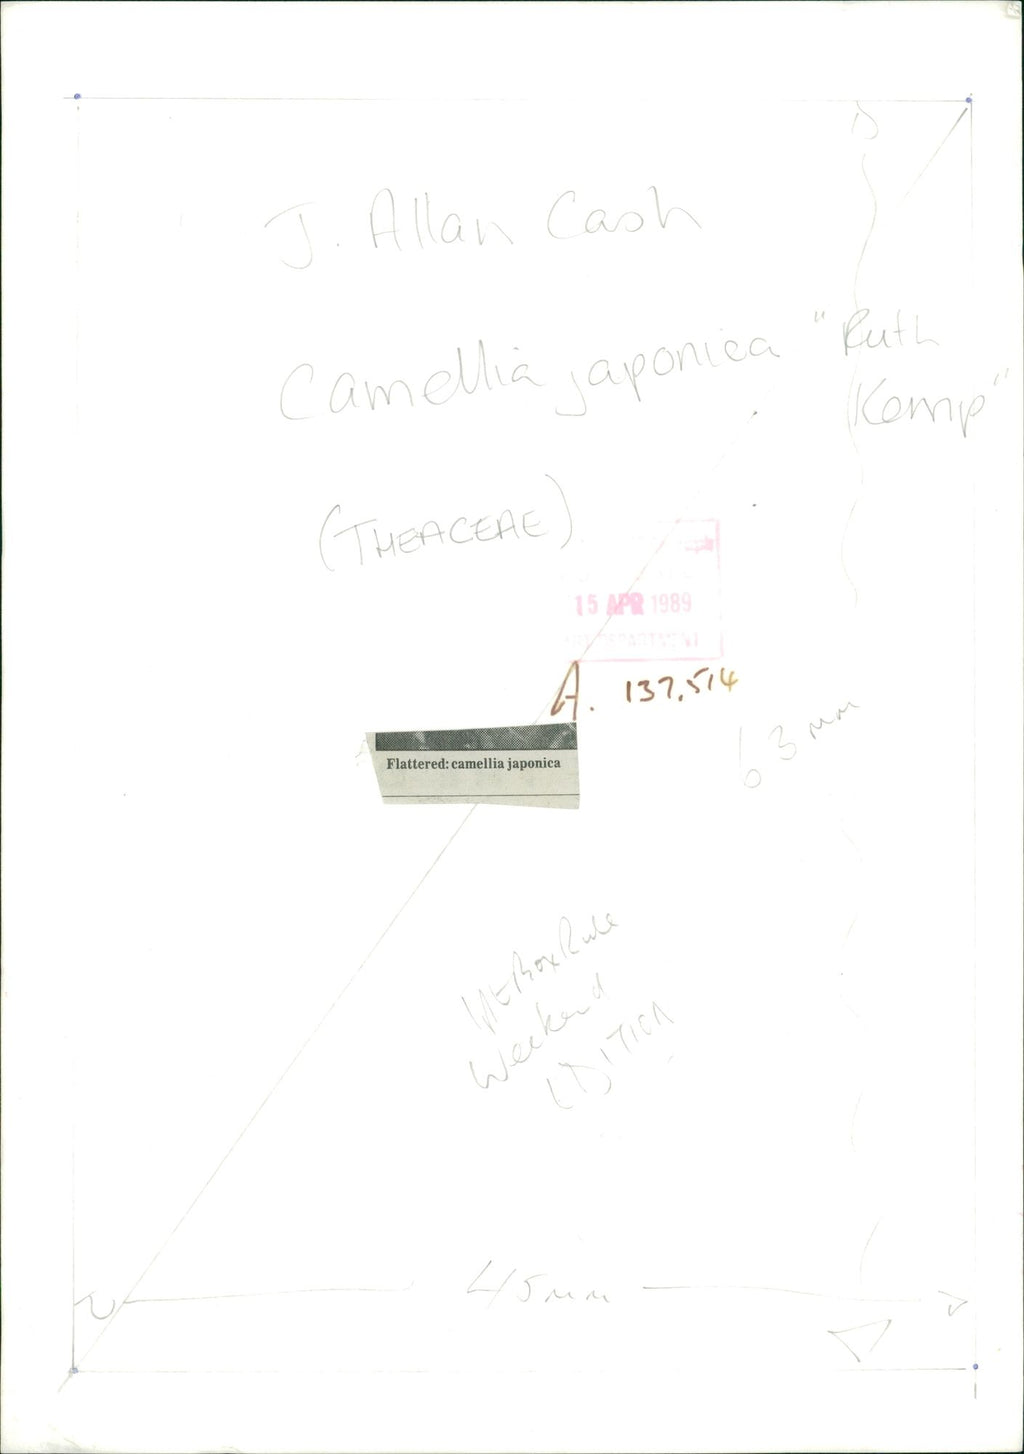 J. Allan Cash
Camellia japonica "Ruth
Kemp"
(THEACEAE)
15 APR 1989
DEPARTMENT
A. 137,514
63mm
Flattered: camellia japonica
Box Rule
Weekend
45mm